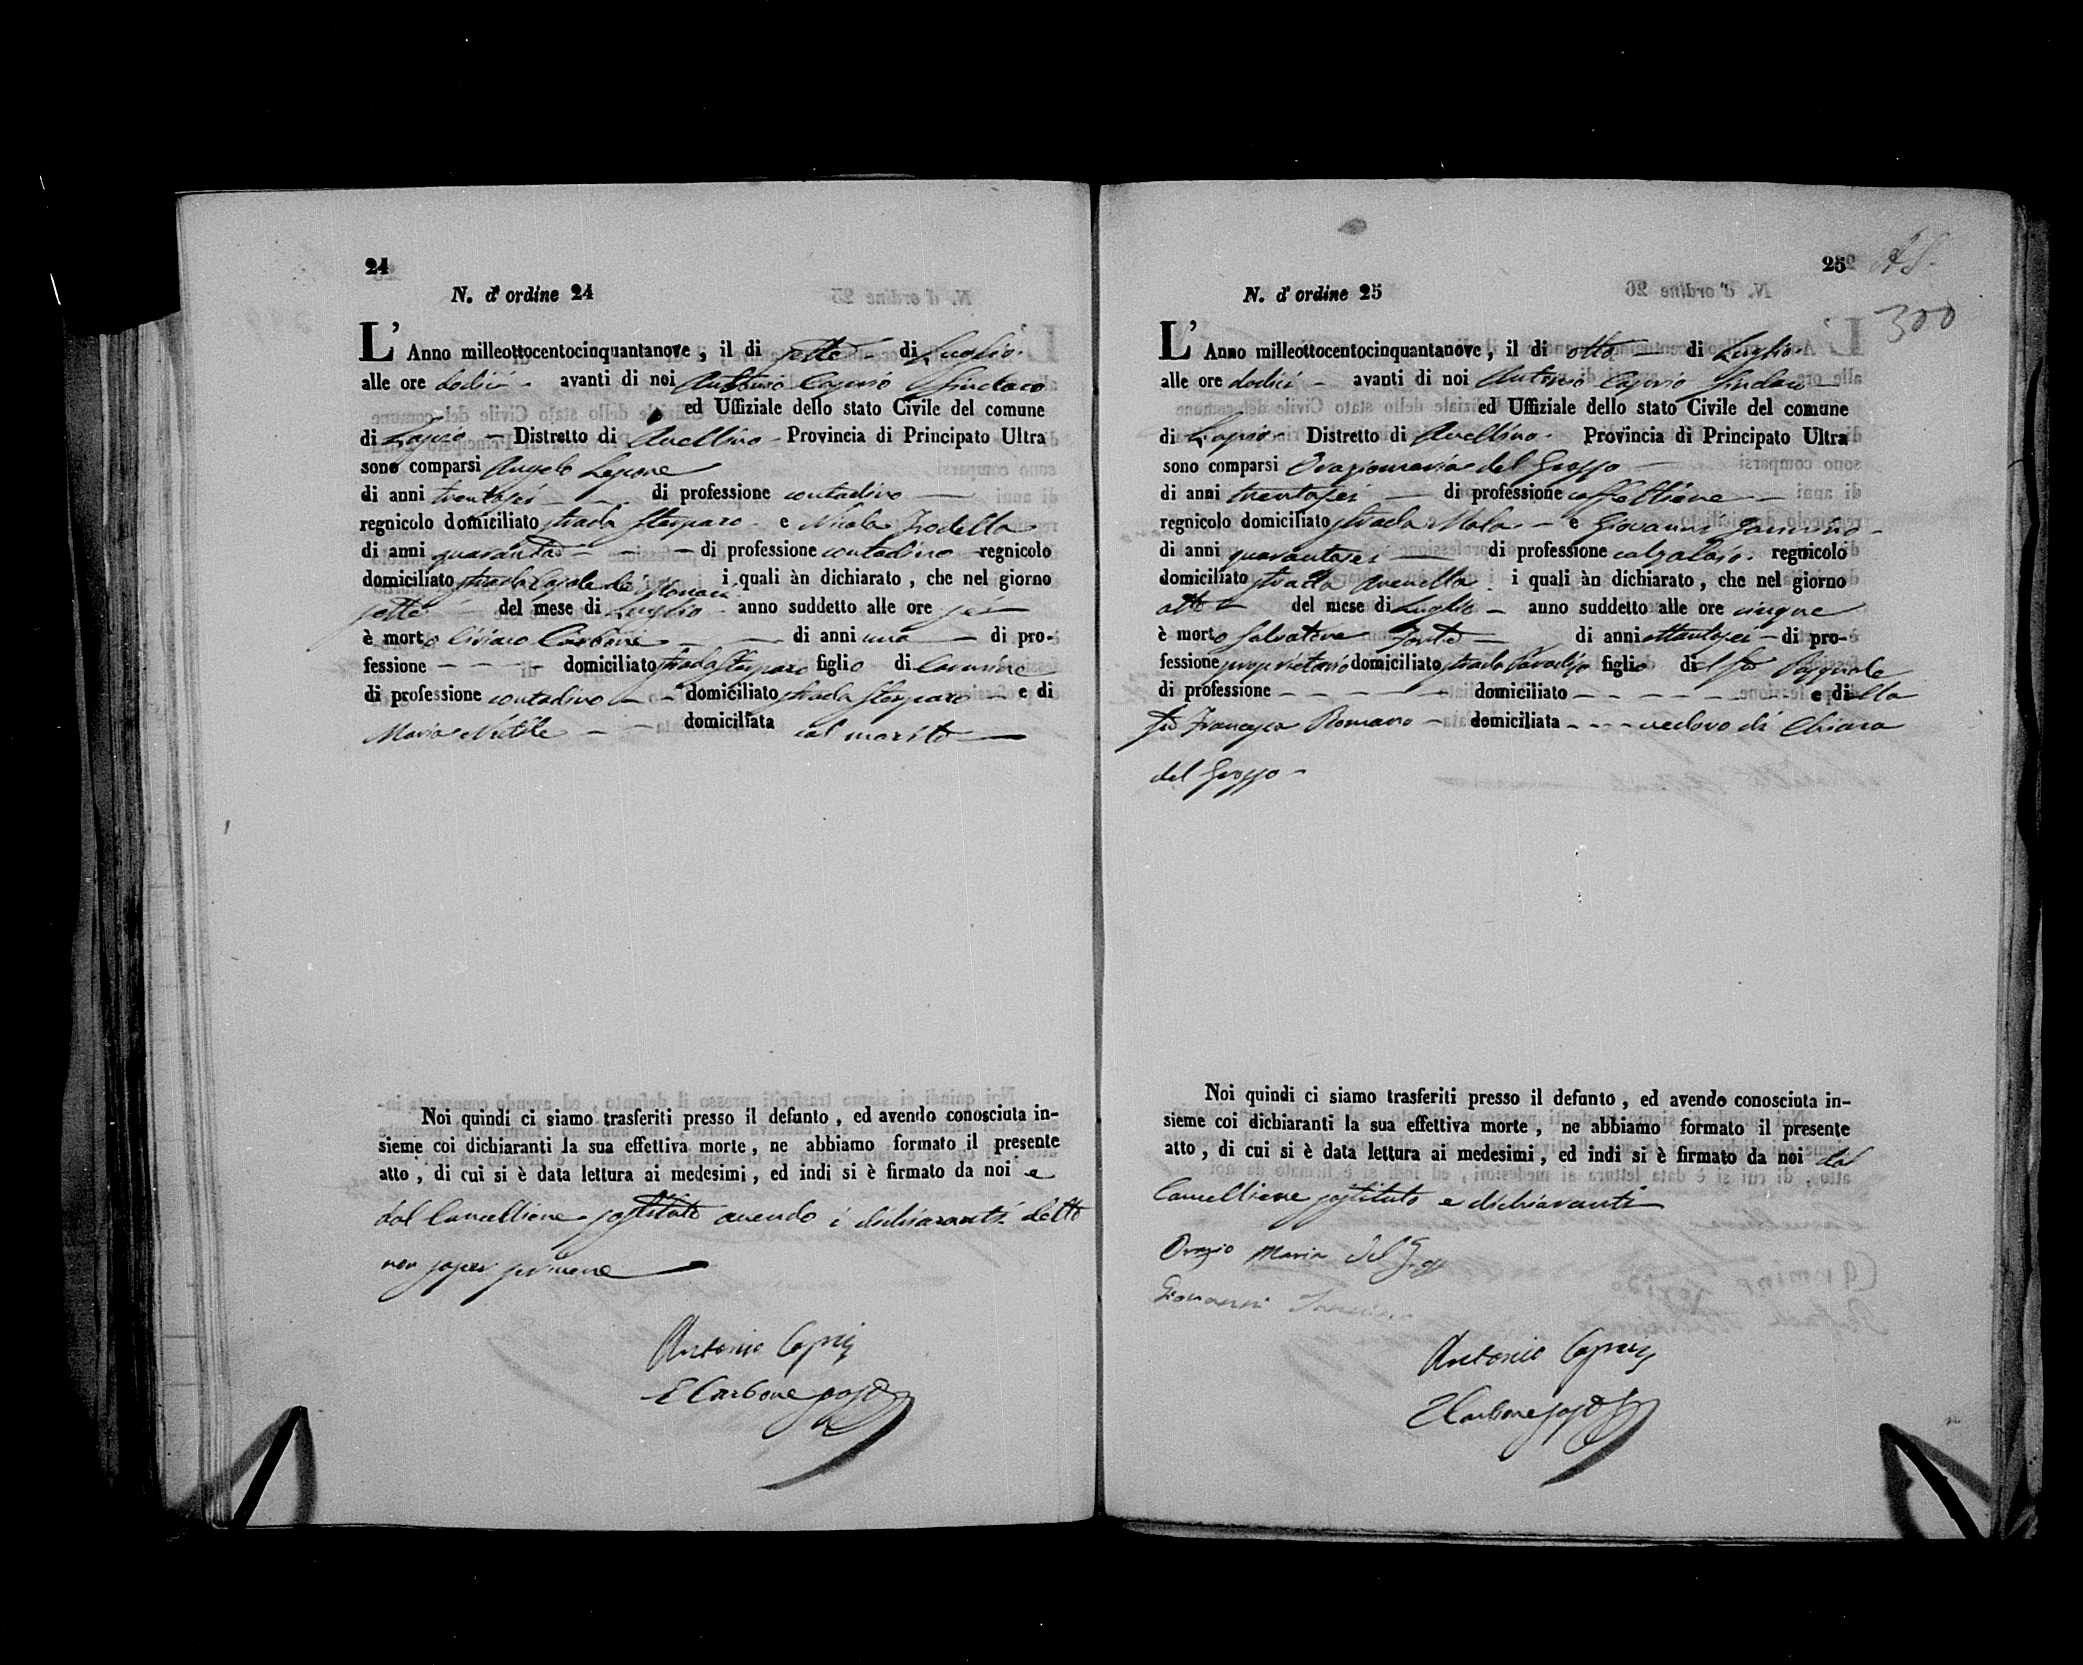 24
N. d' ordine 24
L' Anno millottocentocinquantanove, il di sette - di Luglio.
alle ore dodici - avanti di noi Antonio Caprio Sindaco
ed Uffiziale dello stato Civile del comune
di Lapio - Distretto di Avellino - Provincia di Principato Ultra
sono comparsi Angelo
di anni trentasei - di professione contadino -
regnicolo domiciliato strada e Nicola
di anni quaranta - - - di professione contadino regnicolo
domiciliato strada Casale de i quali àn dichiarato, che nel giorno
sette - del mese di Luglio - anno suddetto alle ore sei
è morto Ciriaco Carbone - - di anni uno - di pro-
fessione - - - - domiciliato strada figlio di Carmine
di professione contadino - - domiciliato strada - e di
Maria - - domiciliata col marito -
Noi quindi ci siamo trasferiti presso il defunto, ed avendo conosciuta in-
sieme coi dichiaranti la sua effettiva morte, ne abbiamo formato il presente
atto, di cui si è data lettura ai medesimi, ed indi si è firmato da noi e
dal Cancelliere sostituto avendo i dichiaranti detto
non saper scrivere
Antonio Caprio
E Carbone sost
25
300
N. d' ordine 25
L' Anno milleottocentocinquantanove, il di otto - di Luglio.
alle ore dodici - avanti di noi Antonio Caprio Sindaco
ed Uffiziale dello stato Civile del comune
di Lapio - Distretto di Avellino. Provincia di Principato Ultra
sono comparsi Oraziomaria del Grosso -
di anni trentasei - di professione caffettiere -
regnicolo domiciliato strada Mala - e Giovanni
di anni quarantasei - di professione calzolaio. regnicolo
domiciliato strada i quali àn dichiarato, che nel giorno
otto - del mese di Luglio - anno suddetto alle ore cinque
è morto Salvatore Forte - di anni ottantasei - di pro-
fessione proprietario domiciliato strada Paradiso figlio del fù Pasquale
di professione - - - - - domiciliato - - - - - e della
fù Francesca Romano - domiciliata - - - vedovo di Chiara
del Grosso -
Noi quindi ci siamo trasferiti presso il defunto, ed avendo conosciuta in-
sieme coi dichiaranti la sua effettiva morte, ne abbiamo formato il presente
atto, di cui si è data lettura ai medesimi, ed indi si è firmato da noi dal
Cancelliere sostituto e dichiaranti
Orazio Maria del Grosso
Giovanni
Antonio Caprio
E Carbone sost